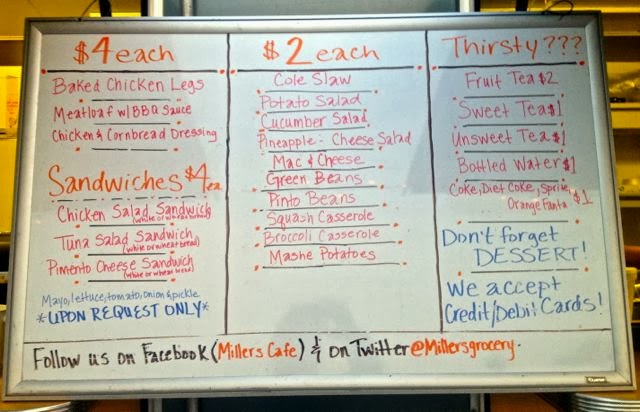 $4 each
Baked Chicken Legs
Meatloaf w/BBQ Sauce
Chicken & Cornbread Dressing
Sandwiches $4 ea
Chicken Salad Sandwich
(white or wheat bread)
Tuna Salad Sandwich
(white or wheat bread)
Pimento Cheese Sandwich
(white or wheat bread)
Mayo, lettuce, tomato, onion & pickle
*UPON REQUEST ONLY*
$2 each
Cole Slaw
Potato Salad
Cucumber Salad
Pineapple-Cheese Salad
Mac & Cheese
Green Beans
Pinto Beans
Squash Casserole
Broccoli Casserole
Mashe Potatoes
Thirsty???
Fruit Tea $2
Sweet Tea $1
Unsweet Tea $1
Bottled Water $1
Coke, Diet Coke, Sprite,
Orange Fanta $1
Don't forget
DESSERT!
We accept
Credit/Debit Cards!
Follow us on Facebook (Millers Cafe) & on Twitter @Millersgrocery.